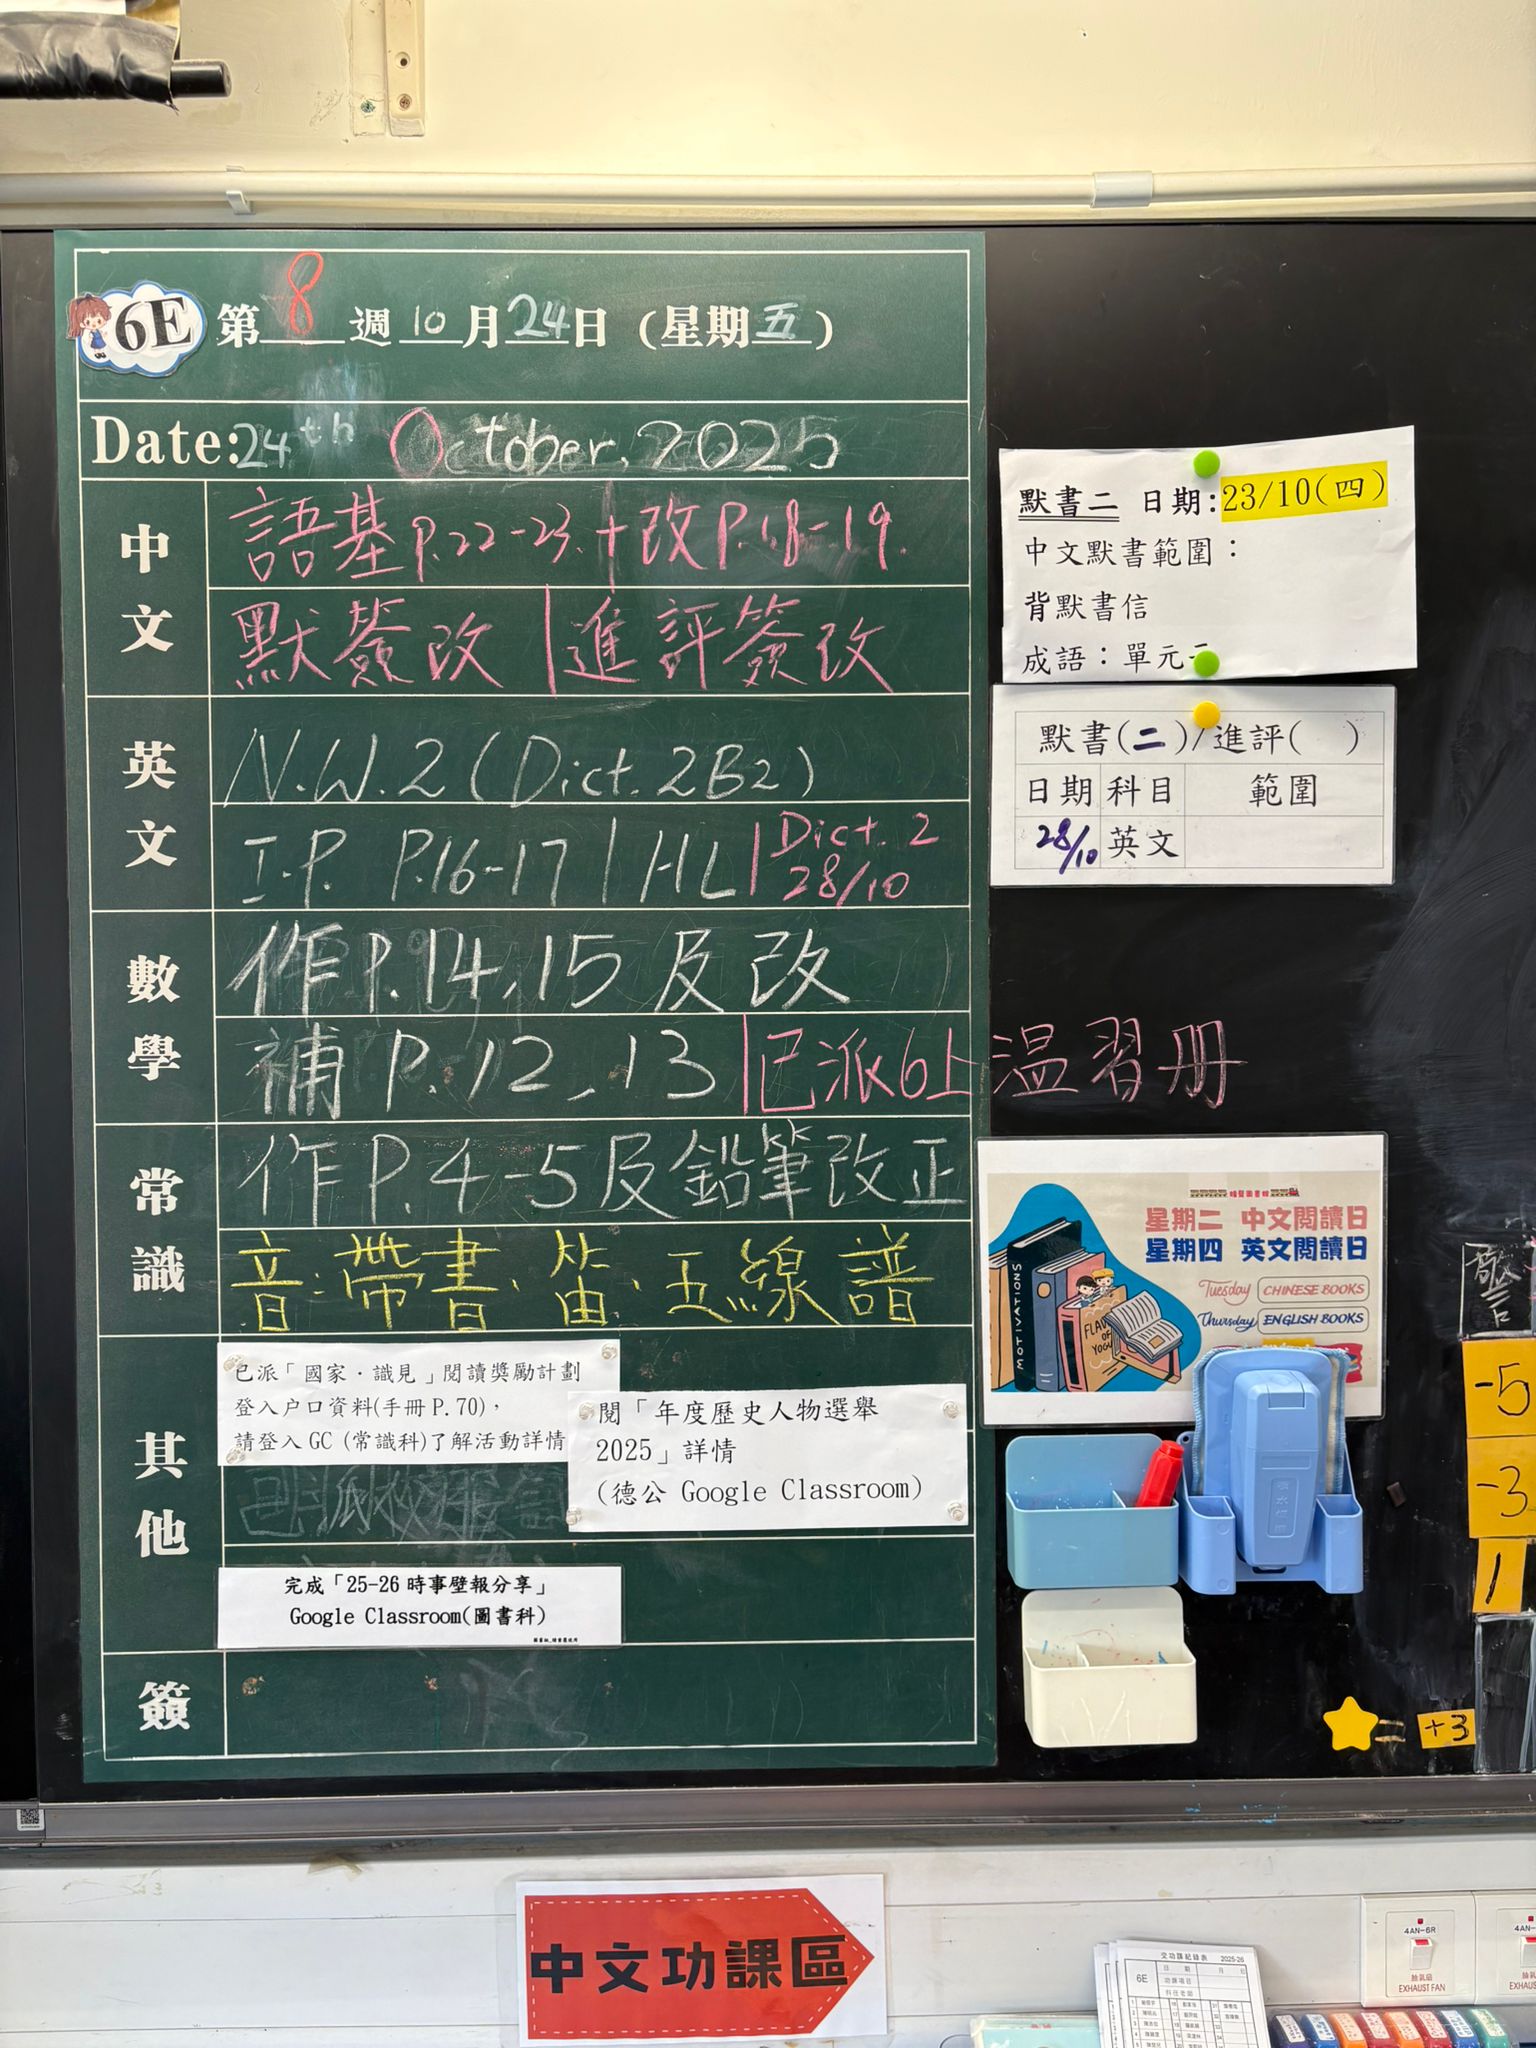 6E 第8週10月24日(星期五)
Date:24th October, 2025
中文
語基P.22-23.+改P.18-19.
默簽改|進評簽改
英文
N.W.2(Dict.2B2)
I.P. P.16-17|HL|Dict.2 28/10
數學
作P.14,15及改
補P.12,13|已派6上温習册
常識
作P.4-5及鉛筆改正
音:帶書、笛、五線譜
其他
已派「國家·識見」閱讀獎勵計劃
登入户口資料(手冊P.70),
請登入GC(常識科)了解活動詳情
閱「年度歷史人物選舉
2025」詳情
(德公 Google Classroom)
完成「25-26時事壁報分享」
Google Classroom(圖書科)
簽
默書二 日期:23/10(四)
中文默書範圍:
背默書信
成語:單元
默書(二)/進評( )
日期 科目 範圍
28/10 英文
星期二 中文閱讀日
星期四 英文閱讀日
Tuesday CHINESE BOOKS
Thursday ENGLISH BOOKS
MOTIVATIONS
警
-5
-3
1
+3
中文功課區
交功課紀錄表 2025-26
6E
日期 月 日
功課項目
科任老師
4AN-6R
抽氣扇
EXHAUST FAN
4AN-
EXHAUS